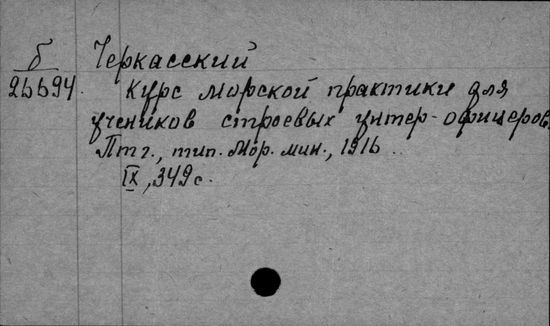 б Черкасский
26694. Курс морской практики для
учеников строевых унтер-офицеров.
Птг., тип. Мор. мин., 1916.
IX, 349 с.